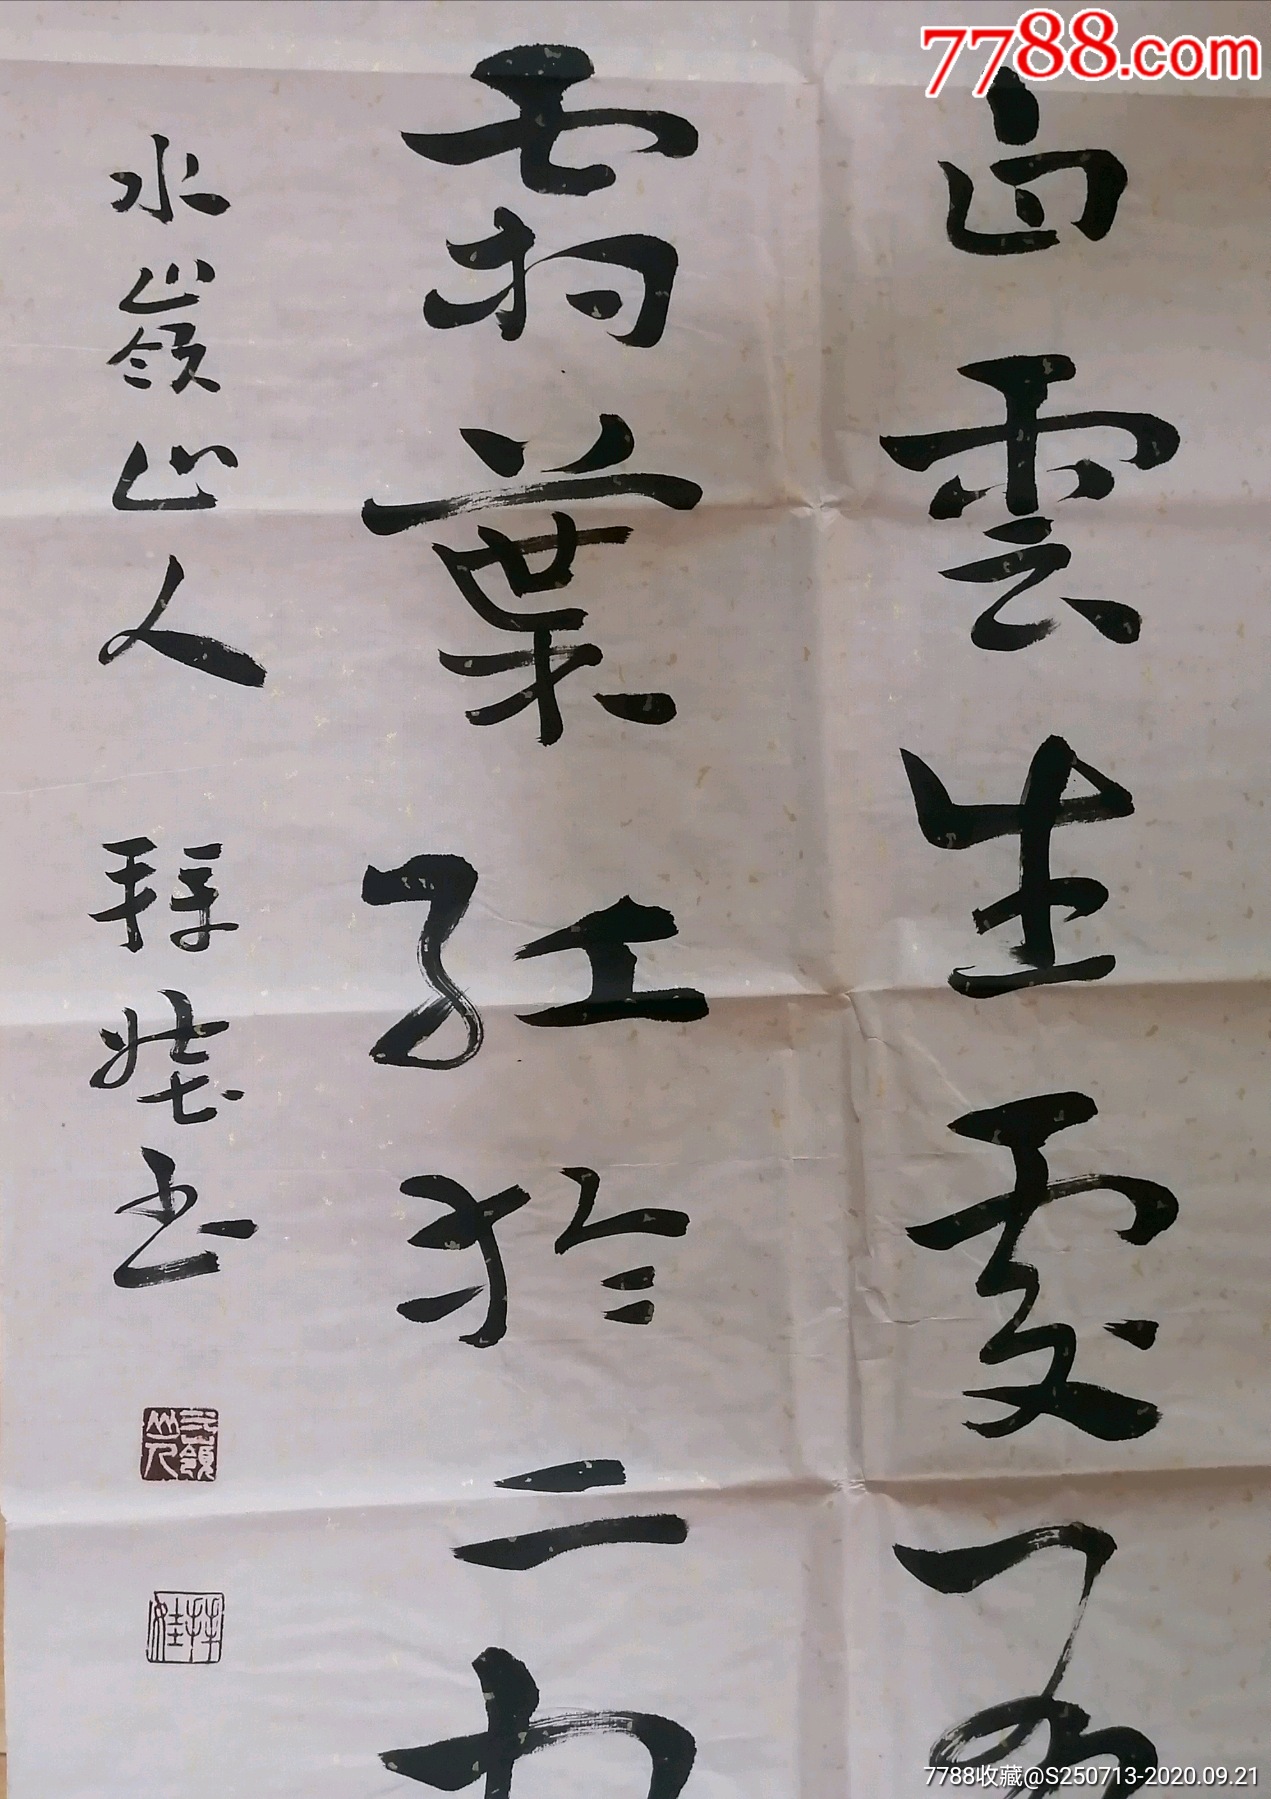 7788.com
白雲生處有
霜葉紅於二月
水嶺山人 書
7788收藏@S250713-2020.09.21